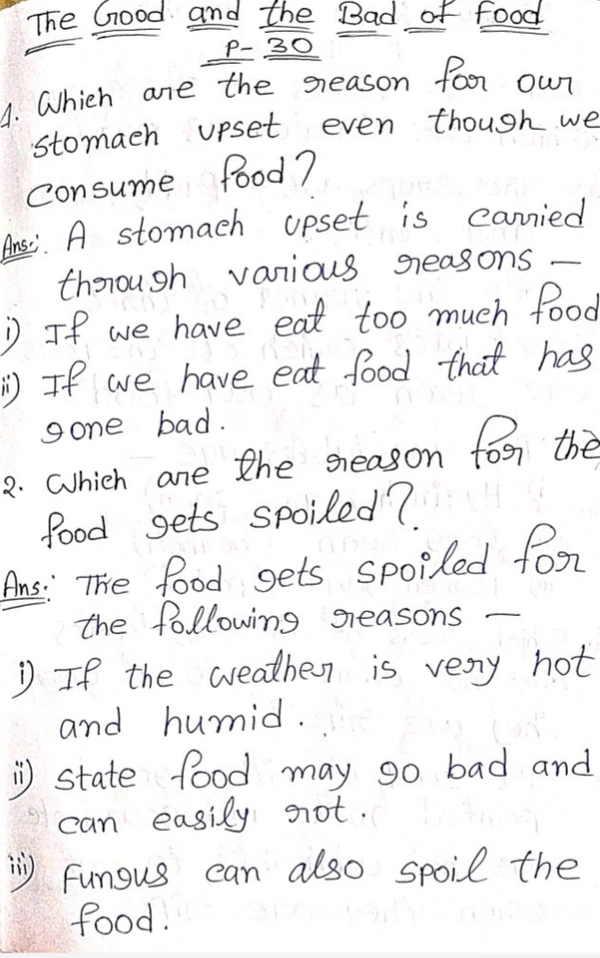 The Good and the Bad of food
P- 30
1. Which are the reason for our
stomach upset even though we
consume food?
Ans:. A stomach upset is carried
through various reasons —
i) If we have eat too much food
ii) If we have eat food that has
gone bad.
2. Which are the reason for the
food gets spoiled?
Ans:. The food gets spoiled for
the following reasons —
i) If the weather is very hot
and humid.
ii) state food may go bad and
can easily rot.
iii) Fungus can also spoil the
food.